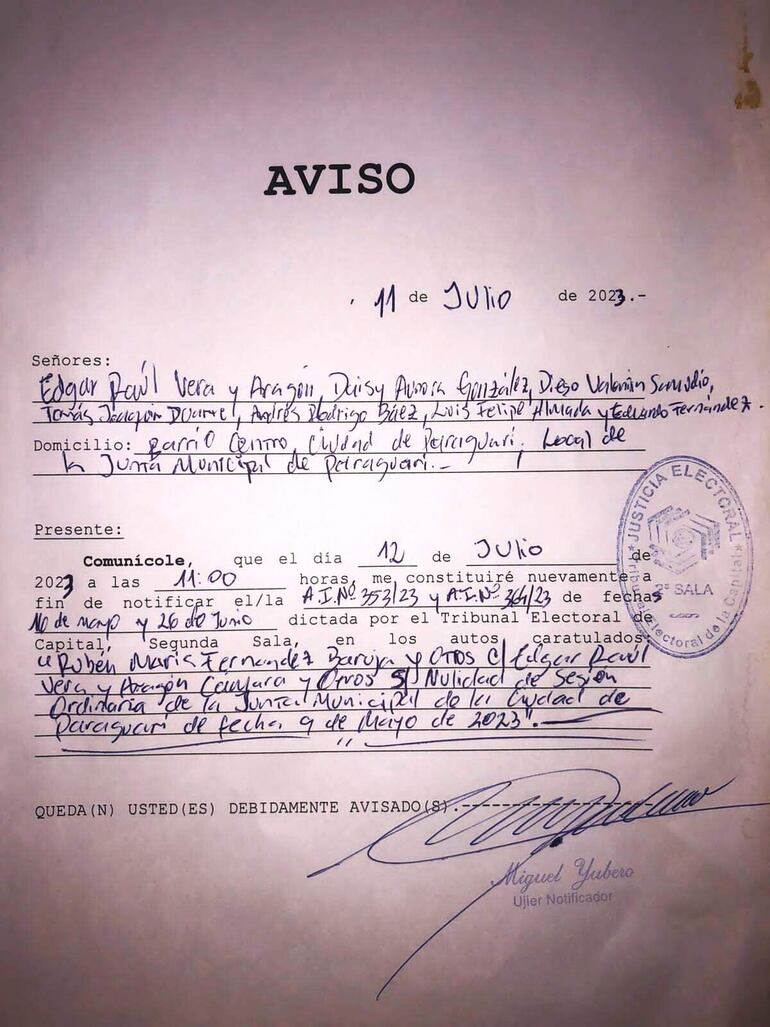 AVISO
, 11 de Julio de 2023.-
Señores:
Edgar Raúl Vera y Aragón, Daisy Aurora González, Diego Valentin Samudio,
Tomás Joaquin Duarte, Andrés Rodrigo Báez, Luis Felipe Almada y Eduardo Fernández.
Domicilio: Barrio Centro, Ciudad de Paraguarí, Local de
la Junta Municipal de Paraguarí.-
Presente:
Comunícole, que el día 12 de Julio de
2023 a las 11:00 horas, me constituiré nuevamente a
fin de notificar el/la A.I. Nº 353/23 y A.I. Nº 364/23 de fechas
16 de mayo y 26 de Junio dictada por el Tribunal Electoral de
Capital, Segunda Sala, en los autos caratulados:
"Rubén Maris Fernandez Baruja y Otros C/ Edgar Raúl
Vera y Aragón Canjara y Otros S/ Nulidad de Sesión
Ordinaria de la Junta Municipal de la Ciudad de
Paraguarí de fecha 9 de Mayo de 2023".
QUEDA(N) USTED(ES) DEBIDAMENTE AVISADO(S).-
JUSTICIA ELECTORAL
2ª SALA
Tribunal Electoral de la Capital
Miguel Yubero
Ujier Notificador